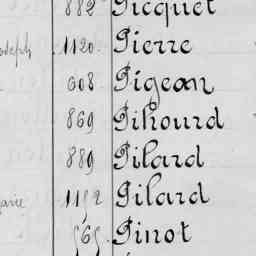 882 Picquet
oseph 1120 Pierre
608 Pigeon
869 Pihourd
889 Pilard
arie 1152 Pilard
565 Pinot